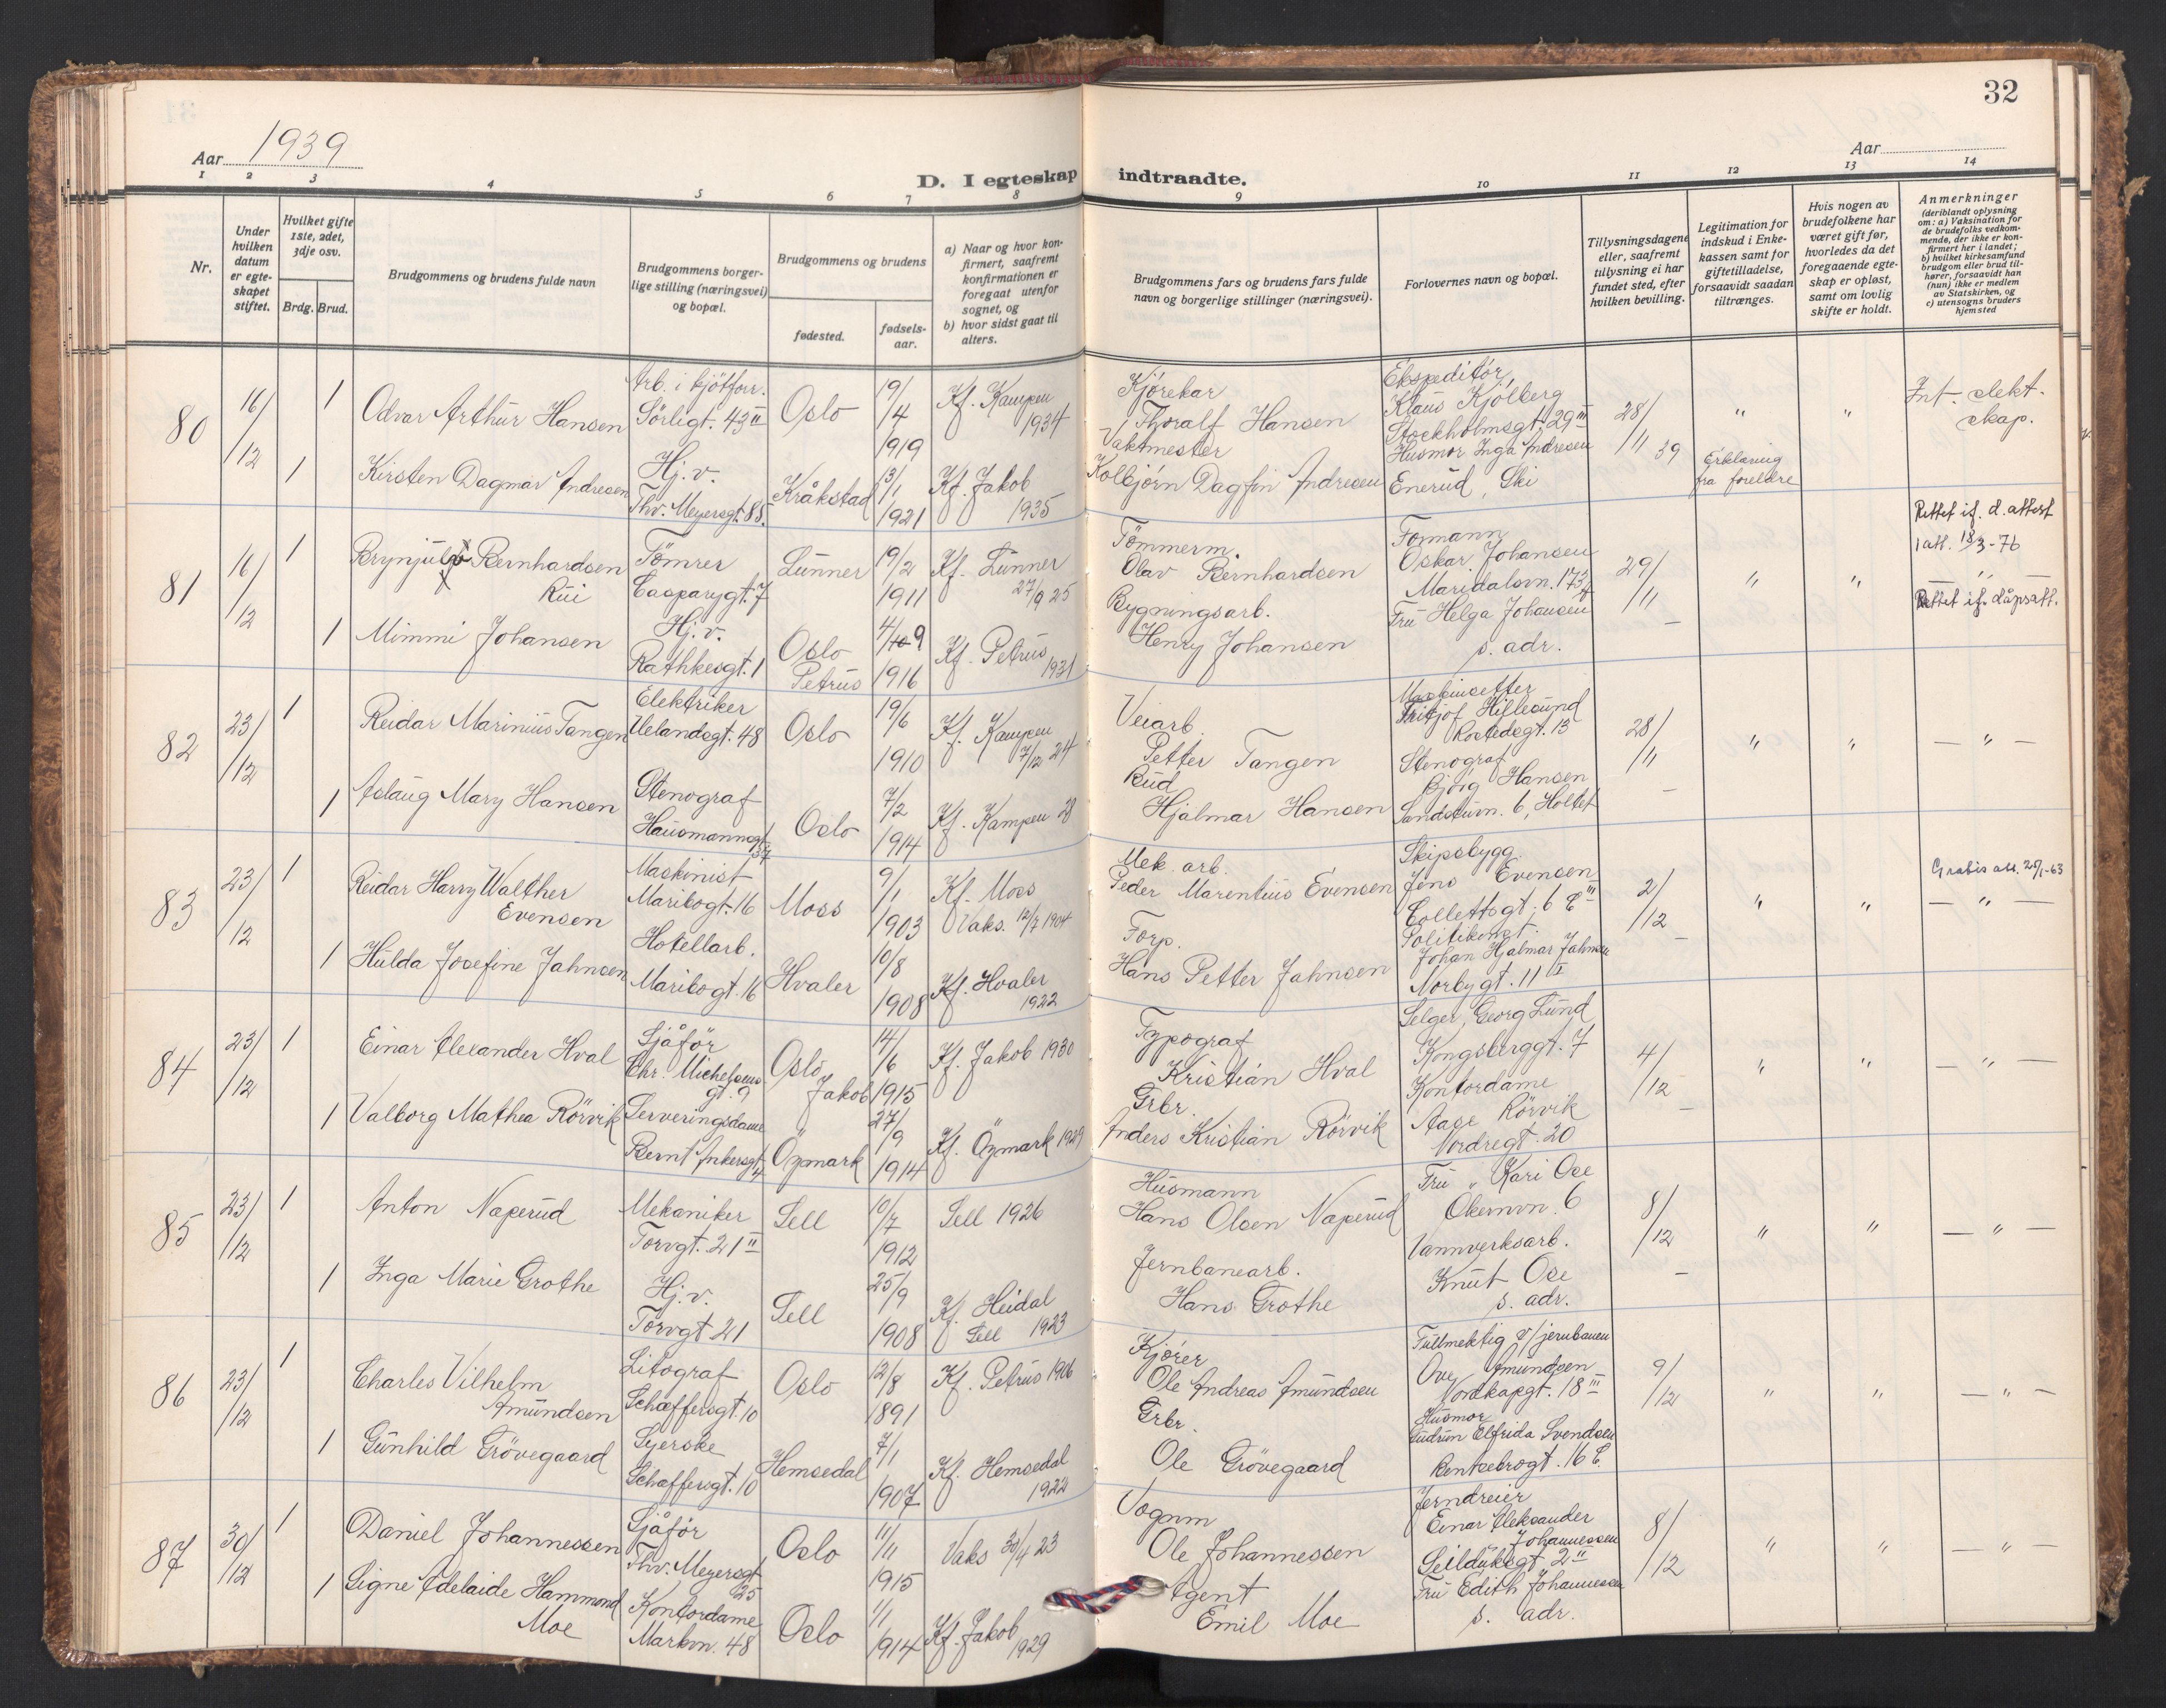 32
Aar 1939
Aar
D. I egteskap indtraadte.
1 2 3 4 5 6 7 8 9 10 11 12 13 14
Nr.
Under hvilken datum er egteskapet stiftet.
Hvilket gifte 1ste, 2det, 3dje osv.
Brdg. Brud.
Brudgommens og brudens fulde navn
Brudgommens borgerlige stilling (næringsvei) og bopæl.
Brudgommens og brudens
fødested.
fødselsaar.
a) Naar og hvor konfirmert, saafremt konfirmationen er foregaat utenfor sognet, og
b) hvor sidst gaat til alters.
Brudgommens fars og brudens fars fulde navn og borgerlige stillinger (næringsvei).
Forlovernes navn og bopæl.
Tillysningsdagene eller, saafremt tillysning ei har fundet sted, efter hvilken bevilling.
Legitimation for indskud i Enkekassen samt for giftetilladelse, forsaavidt saadan tiltrænges.
Hvis nogen av brudefolkene har været gift før, hvorledes da det foregaaende egteskap er opløst, samt om lovlig skifte er holdt.
Anmerkninger
(deriblandt oplysning om: a) Vaksination for de brudefolks vedkommende, der ikke er konfirmert her i landet; b) hvilket kirkesamfund brudgom eller brud tilhører, forsaavidt han (hun) ikke er medlem av Statskirken, og c) utensogns bruders hjemsted
80 16/12 1 Odvar Arthur Hansen
Arb. i kjöttforr. Sörligt. 43 II
Oslo 19/4 1919 Kf. Kampen 1934
Kjørekar Thoralf Hansen
Ekspeditör, Klaus Kjölberg Stockholmsgt. 29 III
28/11 39 " "
Int. slektskap.
1 Kirsten Dagmar Andresen
Hj.v. Thv. Meyersgt. 88.
Kråkstad 13/1 1921 Kf. Jakob 1935
Vaktmester Kolbjørn Dagfin Andresen
Husmor Inga Andresen Enerud, Ski
Erklæring fra foreldre
81 16/12 1 Brynjulf Bernhardsen Rui
Tömrer Casparygt. 7
Lunner 19/2 1911 Kf. Lunner 27/9 25
Tömmerm. Olav Bernhardsen
Formann Oskar Johansen Maridalsvn. 173
29/11 — " "
Rettet if. d. attest 1 att. 18/3-76
1 Mimmi Johansen
Hj.v. Rathkesgt. 1
Oslo Petrus 4/9 1916 Kf. Petrus 1931
Bygningsarb. Henry Johansen
Fru Helga Johansen s. adr.
Rettet if. dåpsatt.
82 23/12 1 Reidar Marinius Tangen
Elektriker Uelandsgt. 48
Oslo 19/6 1910 Kf. Kampen 7/12 24
Veiarb. Petter Tangen
Maskinsetter Fritjof Hillesund Rostedsgt. 13
28/11 — " " — " —
1 Aslaug Mary Hansen
Stenograf Hausmannsgt. 37
Oslo 7/2 1914 Kf. Kampen 28
Bud Hjalmar Hansen
Stenograf Bjørg Hansen Sandstuvn. 6, Holtet
83 23/12 1 Reidar Harry Walther Evensen
Maskinist Maribogt. 16
Moss 9/1 1903 Kf. Moss Vaks. 12/7 1904
Mek. arb. Peder Marentius Evensen
Skipsbygg. Jens Evensen Collettsgt. 6 C III
2/12 — " " — " —
Gratis att. 25/1-63
1 Hulda Josefine Jahnsen
Hotellarb. Maribogt. 16
Hvaler 10/8 1908 Kf. Hvaler 1922
Forp. Hans Petter Jahnsen
Politikonst. Johan Hjalmar Jahnsen Norbygt. 11 II
84 23/12 1 Einar Alexander Hval
Sjåför Chr. Michelsens gt. 9
Oslo, Jakob 14/6 1915 Kf. Jakob 1930
Typograf Kristian Hval
Selger, Georg Lund Kongsberggt. 7
4/12 — " " — " —
1 Valborg Mathea Rörvik
Serveringsdame Bernt Ankersgt. 4
Öymark 27/9 1914 Kf. Öymark 1929
Grbr. Anders Kristian Rörvik
Kontordame Aase Rörvik Nordregt. 20
85 23/12 1 Anton Naperud
Mekaniker Torvgt. 21 II
Sell 10/7 1912 Sell 1926
Husmann Hans Olsen Naperud
Fru Kari Ose Økernvn. 6
8/12 — " " — " —
1 Inga Marie Grothe
Hj.v. Torvgt 21
Sell 25/9 1908 Kf. Heidal Sell 1923
Jernbanearb. Hans Grothe
Vannverksarb. Knut Ose s. adr.
86 23/12 1 Charles Vilhelm Amundsen
Litograf Schæffersgt. 10
Oslo 12/8 1891 Kf. Petrus 1906
Kjører Ole Andreas Amundsen
Fullmektig v/jernbanen Ove Amundsen Nordkapgt. 18 III
9/12 " " — " —
1 Gunhild Grövegaard
Syerske Schæffersgt. 10
Hemsedal 7/1 1907 Kf. Hemsedal 1922
Grbr. Ole Grövegaard
Husmor Gudrun Elfrida Svendsen Bentsebrogt. 16 C.
87 30/12 1 Daniel Johannessen
Sjåför Thv. Meyersgt 25
Oslo 11/11 1915 Vaks 30/4 23
Vognm Ole Johannessen
Jerndreier Einar Aleksander Johannessen Seilduksgt 2 II
8/12 " " — " —
1 Signe Adelaide Hammond Moe
Kontordame Markvn. 48
Oslo 1/1 1914 Kf. Jakob 1929
Agent Emil Moe
Fru Edith Johannessen s. adr.